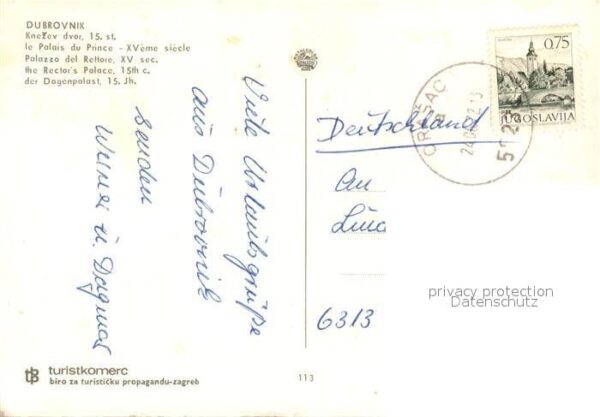 DUBROVNIK
Knežev dvor, 15. st.
le Palais du Prince - XVème siècle
Palazzo del Rettore, XV sec.
the Rector's Palace, 15th c.
der Dogenpalast, 15. Jh.
Viele Urlaubsgrüße
aus Dubrovnik
senden
Werner u. Dagmar
0,75
JUGOSLAVIJA
ORAŠAC
Deutschland
An
6313
privacy protection
Datenschutz
turistkomerc
biro za turističku propagandu-zagreb
113